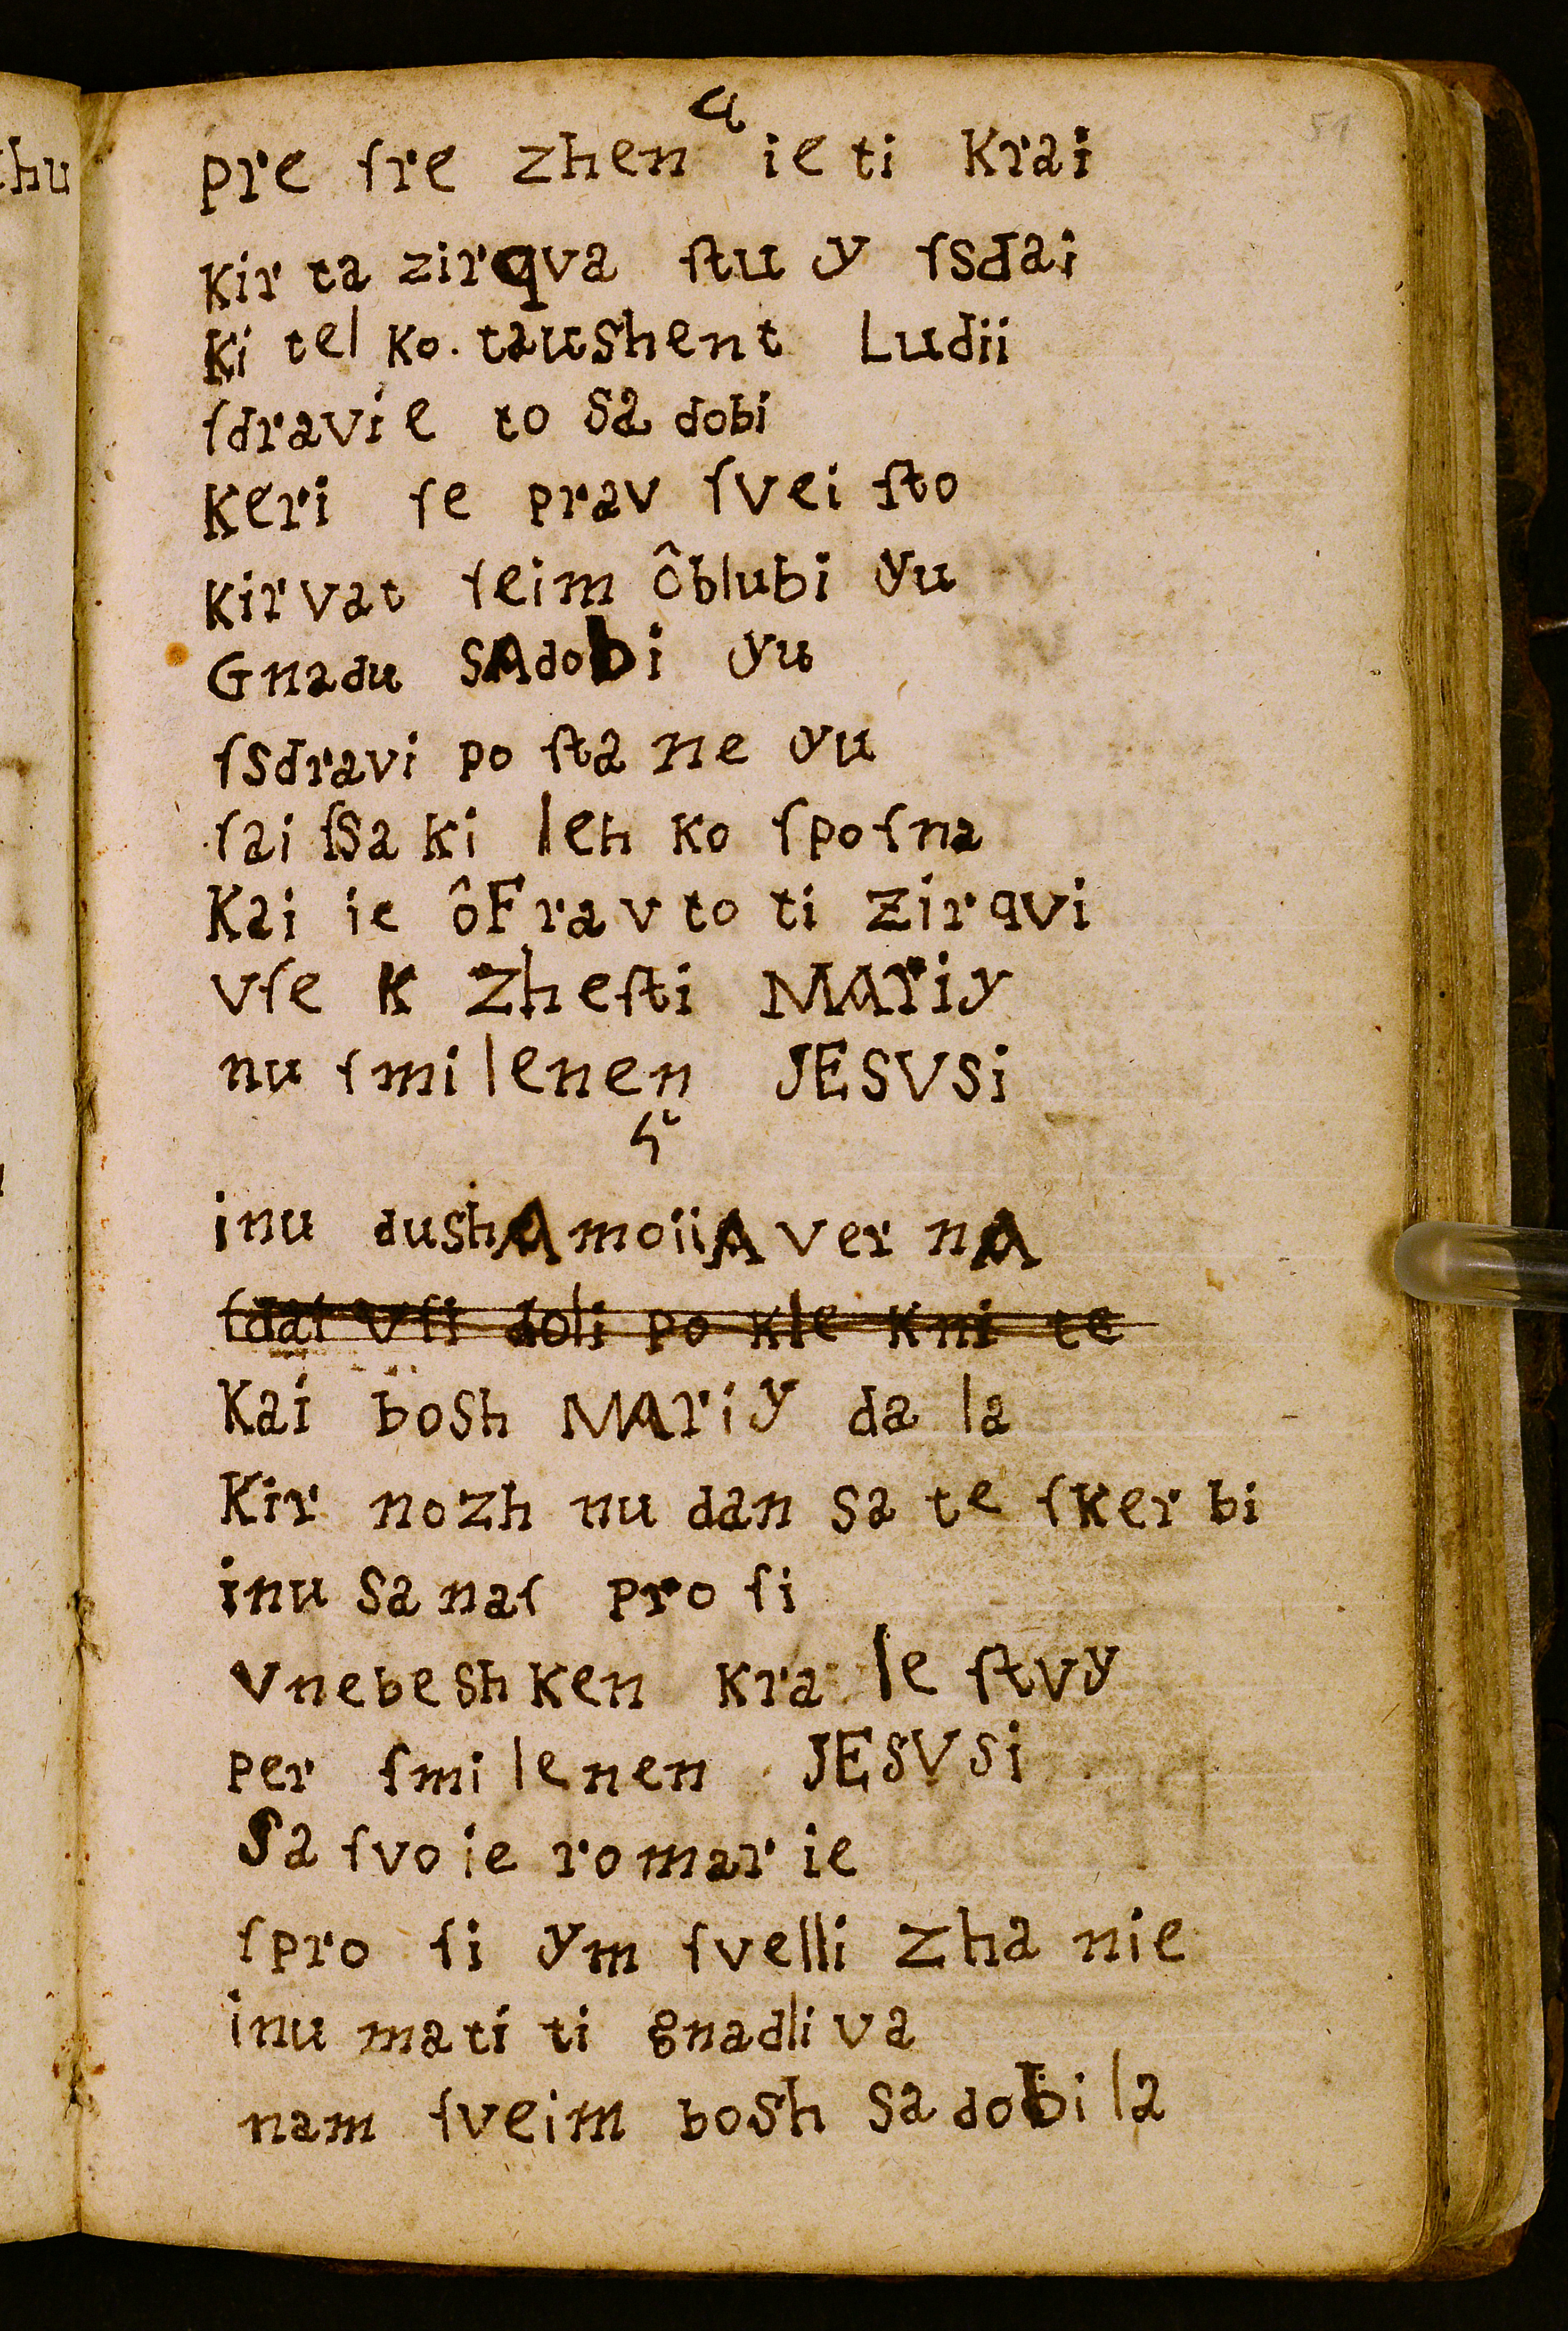 51
4
pre ſre zhen ie ti Krai
Kir ta zirqva ſtu y ſsdai
Ki tel Ko. taushent Ludii
ſdravie to sa dobi
Keri ſe prav ſvei ſto
Kir vat ſeim ôblubi yu
Gnadu sAdobi yu
ſsdravi po ſta ne yu
ſai ſsa Ki leh Ko ſpoſna
Kai ie ôFravto ti zirqvi
vſe K zheſti MAriy
nu ſmilenen JESVSi
5
inu dushA moiiA ver nA
ſdai vſi doli po Kle Kni te
Kai bosh MAriy da la
Kir nozh nu dan sa te ſKer bi
inu sa naſ pro ſi
vnebesh Ken Kra le ſtvy
per ſmilenen JESVSi
sa ſvo ie romar ie
ſpro ſi ym ſvelli zha nie
inu mati ti gnadli va
nam ſveim bosh sa dobi la
hu